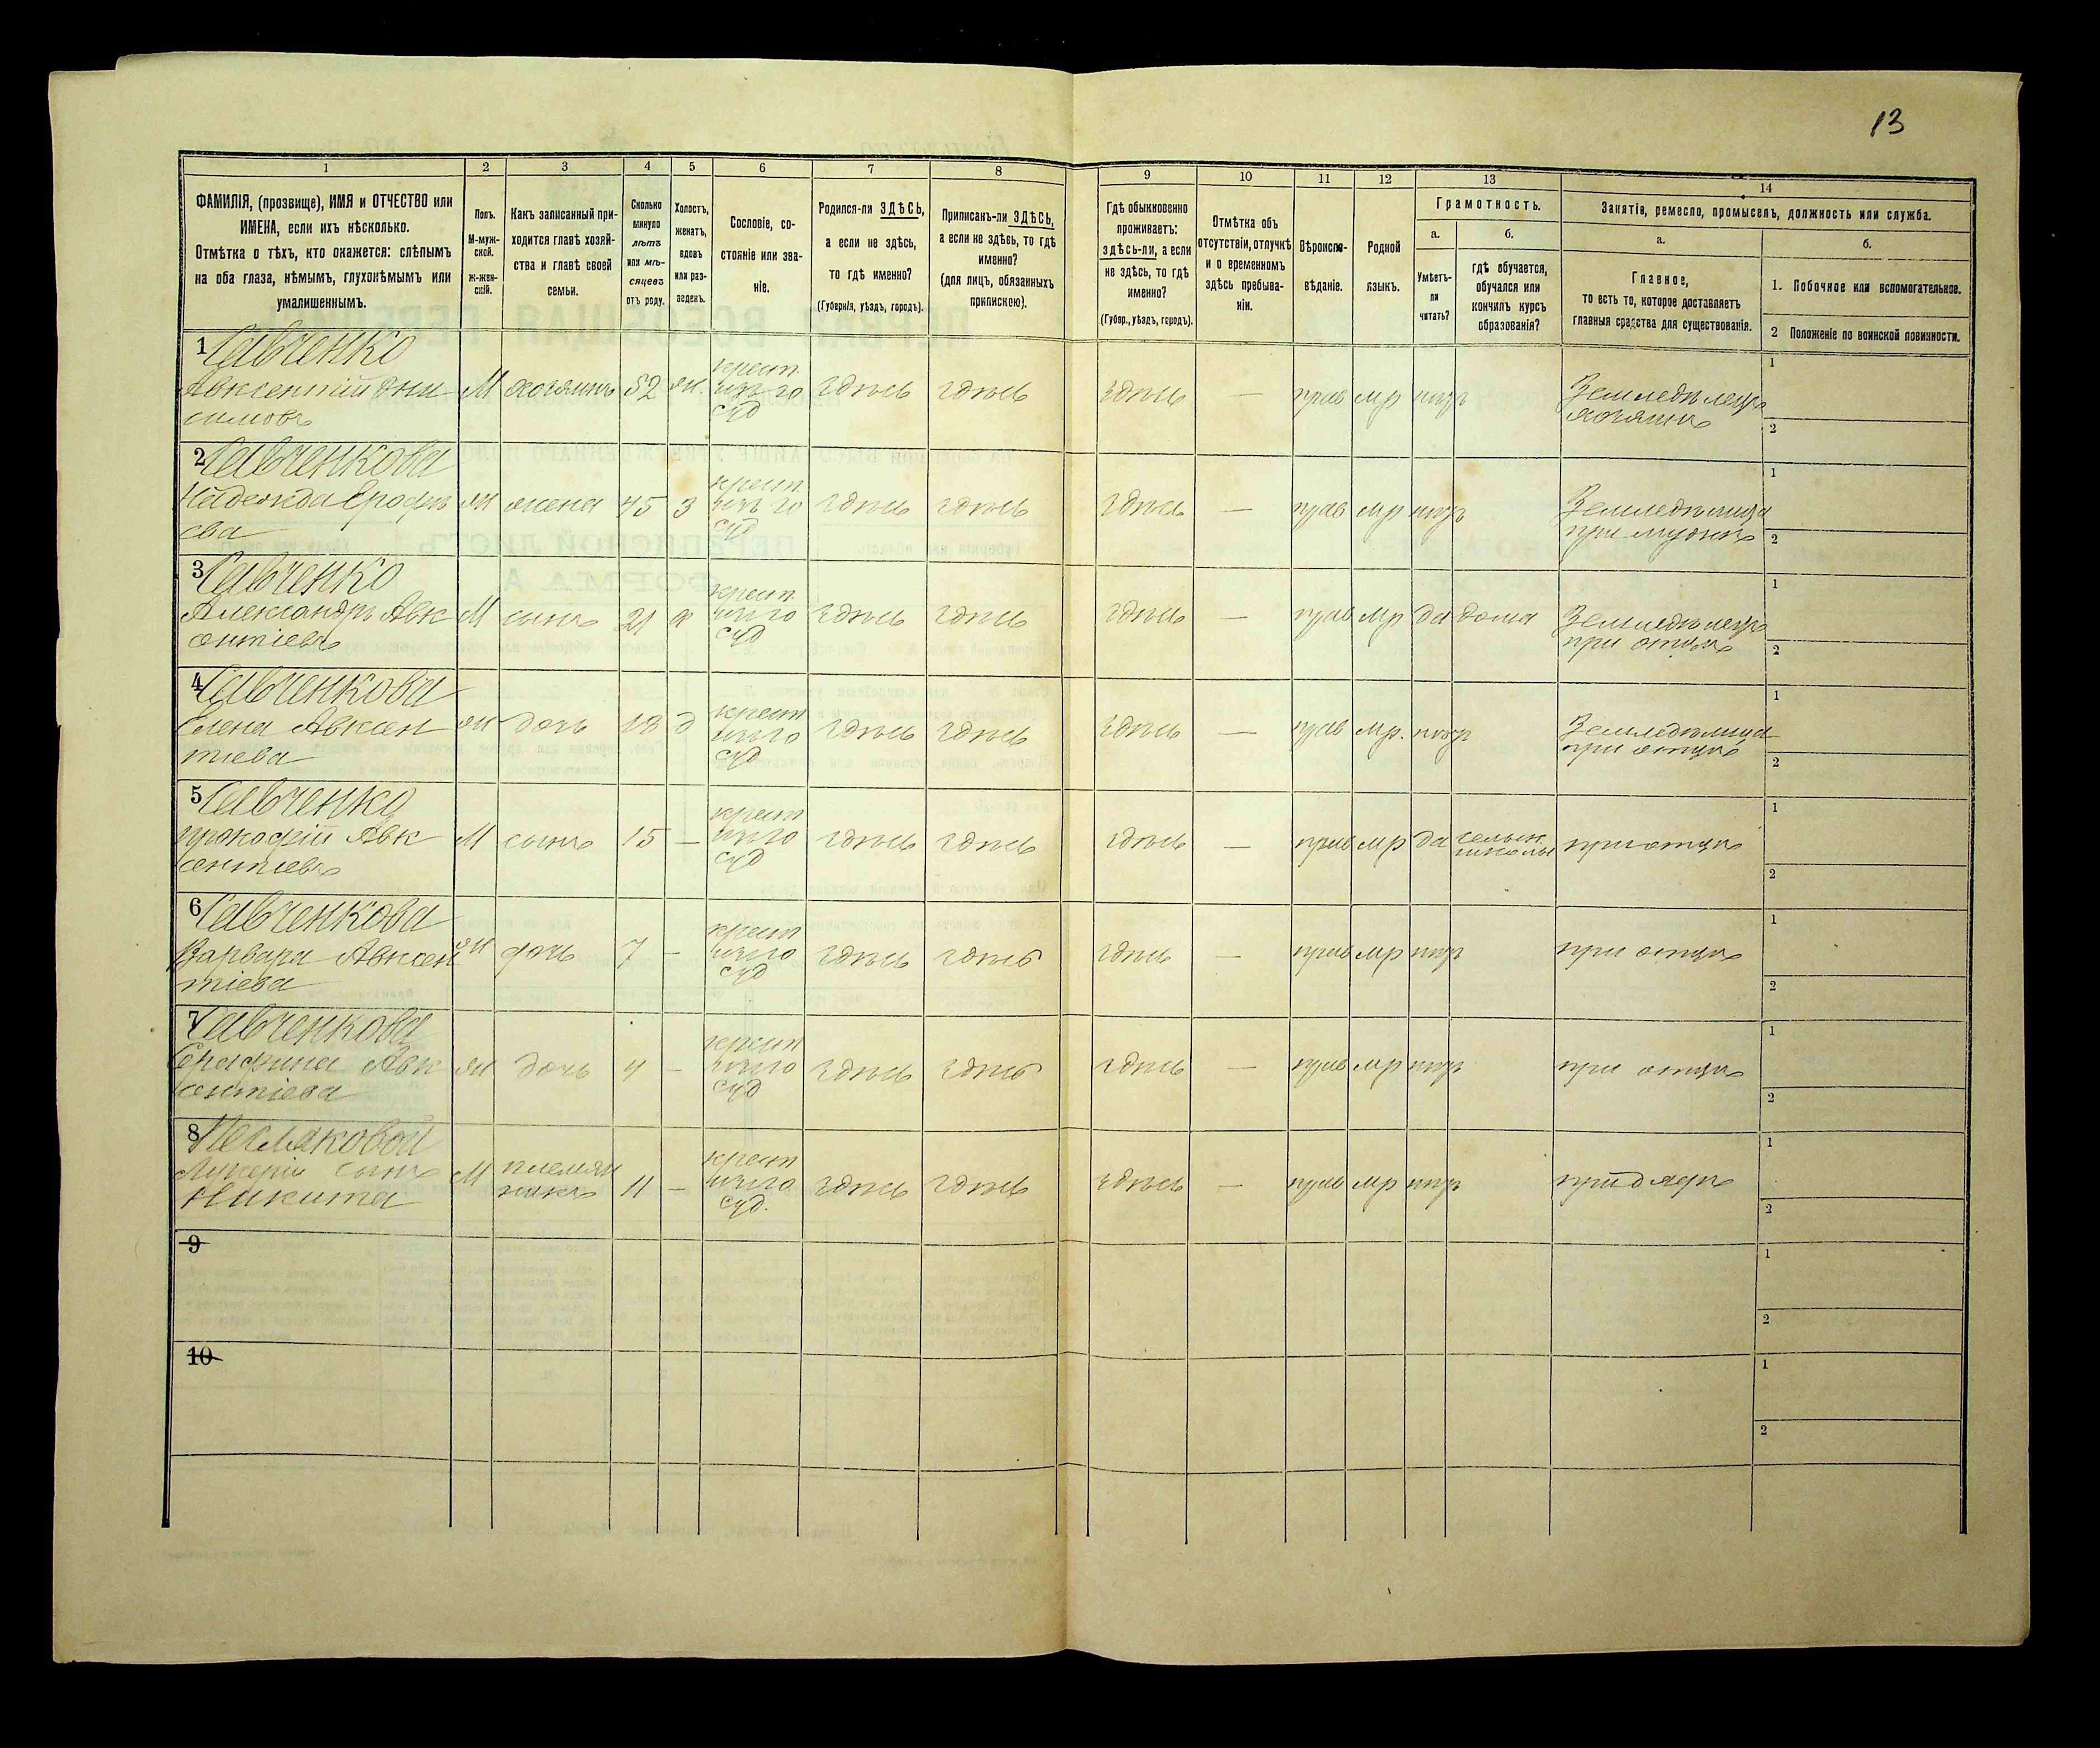 13
1 2 3 4 5 6 7 8 9 10 11 12 13 14
ФАМИЛІЯ, (прозвище), ИМЯ и ОТЧЕСТВО или
ИМЕНА, если ихъ нѣсколько.
Отмѣтка о тѣхъ, кто окажется: слѣпымъ
на оба глаза, нѣмымъ, глухонѣмымъ или
умалишеннымъ.
Полъ.
М-муж-
ской.
Ж-жен-
скій.
Какъ записанный при-
ходится главѣ хозяй-
ства и главѣ своей
семьи.
Сколько
минуло
лѣтъ
или мѣ-
сяцевъ
отъ роду.
Холостъ,
женатъ,
вдовъ
или раз-
веденъ.
Сословіе, со-
стояніе или зва-
ніе.
Родился-ли ЗДѢСЬ,
а если не здѣсь,
то гдѣ именно?
(Губернія, уѣздъ, городъ).
Приписанъ-ли ЗДѢСЬ,
а если не здѣсь, то гдѣ
именно?
(для лицъ, обязанныхъ
припискею).
Гдѣ обыкновенно
проживаетъ:
здѣсь-ли, а если
не здѣсь, то гдѣ
именно?
(Губер., уѣздъ, городъ).
Отмѣтка объ
отсутствіи, отлучкѣ
и о временномъ
здѣсь пребыва-
ніи.
Вѣроиспо-
вѣданіе.
Родной
языкъ.
Грамотность.
а.
Умѣетъ-
ли
читать?
б.
гдѣ обучается,
обучался или
кончилъ курсъ
образованія?
Занятіе, ремесло, промыселъ, должность или служба.
а.
Главное,
то есть то, которое доставляетъ
главныя средства для существованія.
б.
1. Побочное или вспомогательное.
2 Положеніе по воинской повинности.
1 Савченко
Авксентій Они М хозяинъ 52 ж. крест. здѣсь здѣсь здѣсь — прав мр нѣтъ Земледѣлецъ 1
симовъ хозяинъ 2
2 Савченкова
Надежда Ерофѣ ж жена 45 з крест. здѣсь здѣсь здѣсь — прав мр нѣтъ Земледѣлица 1
ева при мужѣ 2
3 Савченко
Александръ Авк М сынъ 21 х крест. здѣсь здѣсь здѣсь — прав мр да дома Земледѣлецъ 1
сентіевъ при отцѣ 2
4 Савченкова
Елена Авксен ж дочь 18 д крест здѣсь здѣсь здѣсь — прав мр. нѣтъ Земледѣлица 1
тіева при отцѣ 2
5 Савченко
Прокофій Авк М сынъ 15 — крест здѣсь здѣсь здѣсь — прав мр да сельск. школы при отцѣ 1
сентіевъ 2
6 Савченкова
Варвара Авксен ж дочь 7 — крест здѣсь здѣсь здѣсь — прав мр нѣтъ при отцѣ 1
тіева 2
7 Савченкова
Серафима Авк ж дочь 4 — крест здѣсь здѣсь здѣсь — прав мр нѣтъ при отцѣ 1
сентіева 2
8
Лукеріи сынъ М племян 11 — крест здѣсь здѣсь здѣсь — прав мр нѣтъ при дядѣ 1
Никита никъ 2
9 1
2
10 1
2